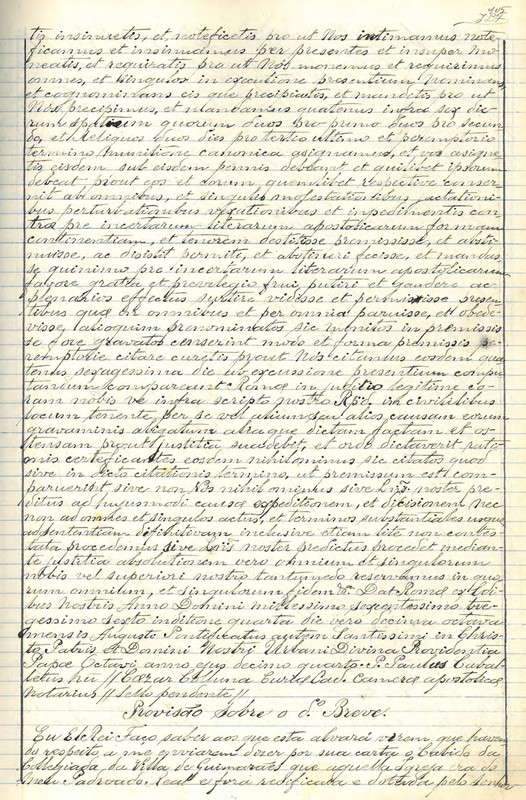 tis insinuetis, et noteficetis pro ut Nos intimamus note-
ficamus et insinuamus per presentes et insuper mo-
neatis, et requiratis pro ut Nos monemus et requirimus
omnes, et singulos in executione presentium Nominan
et cognominan eis que precipiatis, et mandetis pro ut
Nos precipimus, et mandamus quatenus infra sex die-
rum spatium quorum duos pro premo duos pro secun
do, et Reliquos duos dies pro tertio ultimo et peremptorio
termino munitione canonica asignamus, et vos asigne
tis eisdem sub eisdem pennis debeant et quilibet ipsorum
debeat prout eos et eorum quemlibet respective conser
nit ab omnibus, et singulis molestationibus
bus perturbationibus vexationibus et inpedimentis con
tra pre incertarum literarum apostolicarum formam
continentiam, et tenorem destitisse promississe, et absti-
nuisse, ac disistit permiti, et abstineri fecisse, et mandas
se quinimo pre incertarum literarum apostylicarum
favore gratia et previlegio frui, putiri et gaudere ac
plenarios effectus sortire vidisse et permississe presen
tibus que in omnibus et per omnia paruisse, et obede-
visse, alioquim prenominatos sic monitos in premissis
se fore gravatos conserint modo et forma premissis pe-
remptorie citare curetis prout Nos citamus eosdem qua
tenus sexagessima die ab excussione presentium compu
tandum compareant Romæ in juditio legitime co-
ram nobis ve infra scripto nostro in civilibus
locum tenente, per se vel alium seu alios causam eorum
gravaminis alegatum aliaque dictam factam et os-
tensam prout justitia suadebit, et ordo dictaverit ratio
nis certeficantes eosdem nihilominus sic citatos quod
sive in dicto citationis termino, ut premissum est com-
paruerint sive non Nos nihil ominus sive noster pre-
ditus ad hujusmodi causæ expeditionem, et dicisionem nec
non ad omnes et singulos actus, et terminos substantiales usque
ad sententiam difinitivam inclusive etiam lite non contes
tata procedemus sive noster predictus procedet median-
te justitia absolutionem vero omnium et singulorum
nobis vel superiori nostro tantumodo reservamus in quo
rum omnium, et singulorum fidem Dat Romæ ex Edi-
bus Nostris Anno Domini millessimo sexcentessimo tre-
gessimo sexto inditione quarta die vero decima octava
mensis Augusti Pontificatus autem Santissimi in Chris-
to Patris et Domini Nostri Urbani Divina Providentia
Papæ Octavi anno ejus decimo quarto. P. Paulus Cabal-
letus hu // Cezar Colluna Curiæ Cau. Cameræ apostolicæ
Notarius // Sello pendente //
Provisão sobre o d.º Breve.
Eu El Rei Faço saber aos que esta alvará virem que haven
do respeito a me inviarem dizer por sua carta o Cabido da
Collegiada da Villa de Guimaraes que aquella Igreja era do
meu Padroado Real e fora redificada e dotada pelo senhor